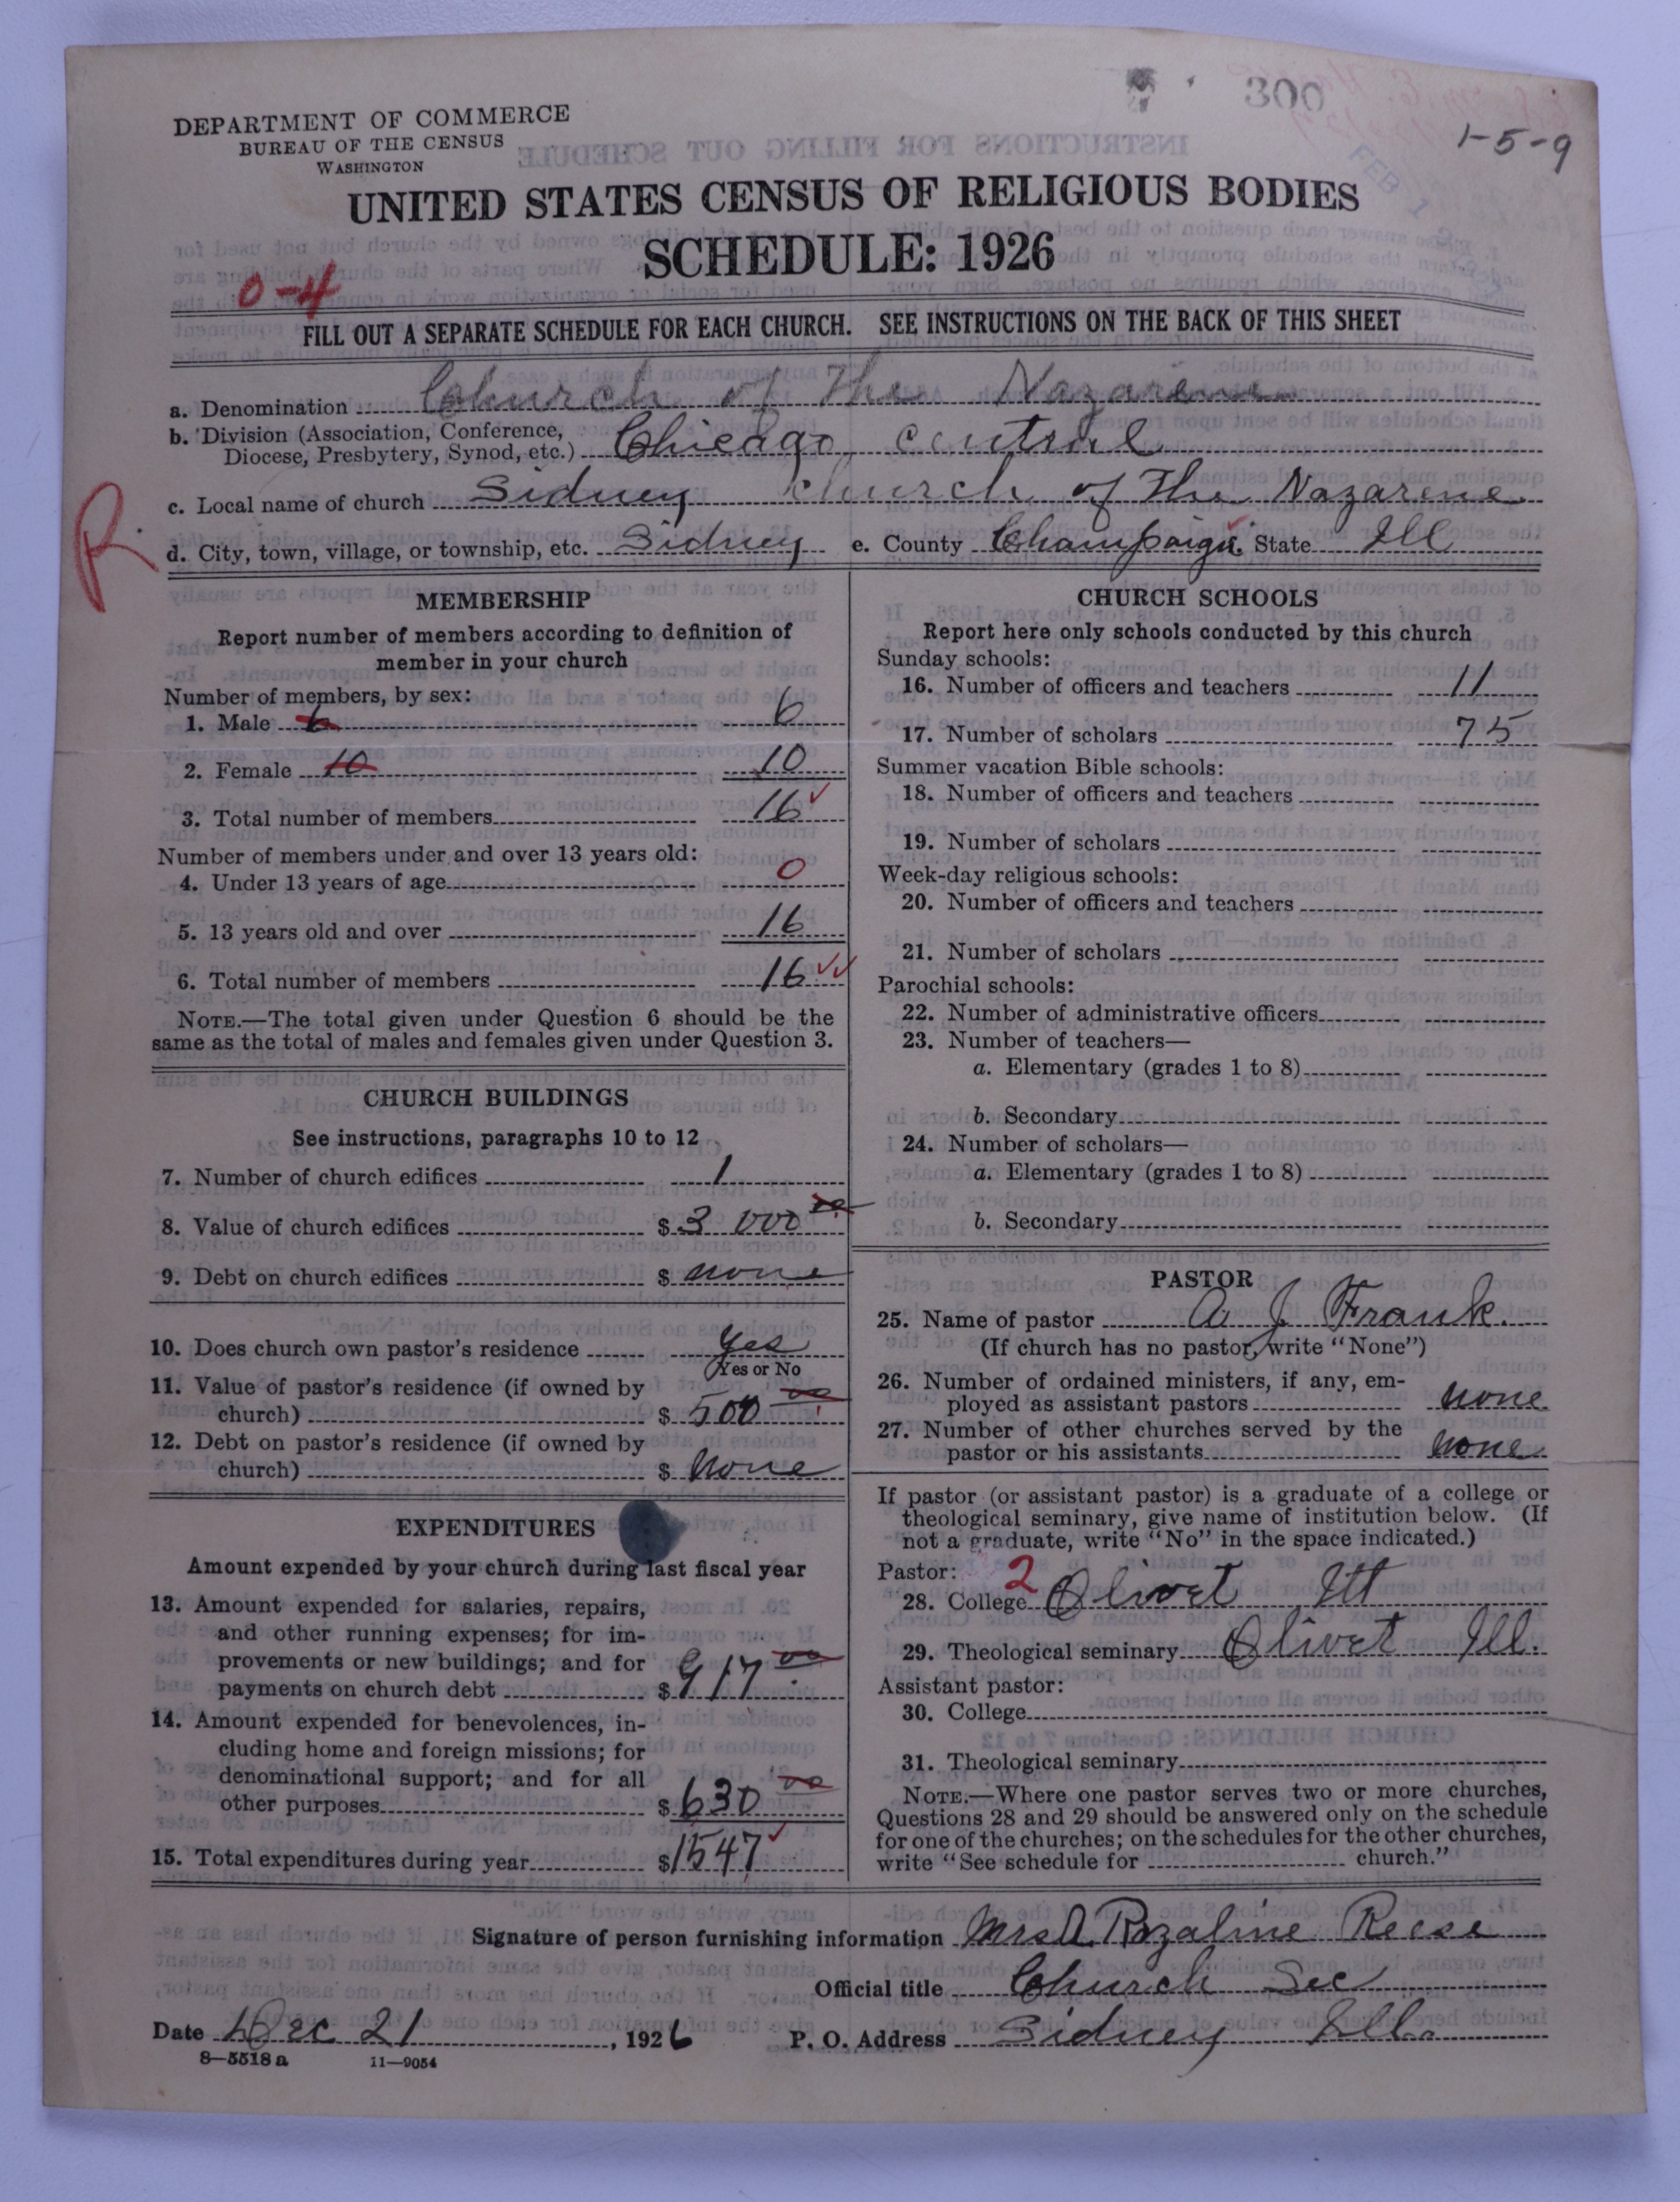 300
1-5-9
DEPARTMENT OF COMMERCE
BUREAU OF THE CENSUS
WASHINGTON
UNITED STATES CENSUS OF RELIGIOUS BODIES
SCHEDULE: 1926
0-4
FILL OUT A SEPARATE SCHEDULE FOR EACH CHURCH. SEE INSTRUCTIONS ON THE BACK OF THIS SHEET
a. Denomination Church of the Nazarene
b. Division (Association, Conference,
Diocese, Presbytery, Synod, etc.) Chicago central
c. Local name of church Sidney church of the Nazarene
R.
d. City, town, village, or township, etc. Sidney e. County Champaign State Ill
MEMBERSHIP
Report number of members according to definition of
member in your church
Number of members, by sex:
1. Male 6 6
2. Female 10 10
3. Total number of members 16
Number of members under and over 13 years old:
4. Under 13 years of age 0
5. 13 years old and over 16
6. Total number of members 16
NOTE.—The total given under Question 6 should be the
same as the total of males and females given under Question 3.
CHURCH BUILDINGS
See instructions, paragraphs 10 to 12
7. Number of church edifices 1
8. Value of church edifices $ 3 000 00
9. Debt on church edifices $ none
10. Does church own pastor's residence yes
Yes or No
11. Value of pastor's residence (if owned by
church) $ 500 00
12. Debt on pastor's residence (if owned by
church) $ None
EXPENDITURES
Amount expended by your church during last fiscal year
13. Amount expended for salaries, repairs,
and other running expenses; for im-
provements or new buildings; and for
payments on church debt $ 917 00
14. Amount expended for benevolences, in-
cluding home and foreign missions; for
denominational support; and for all
other purposes $ 630 00
15. Total expenditures during year $1547
CHURCH SCHOOLS
Report here only schools conducted by this church
Sunday schools:
16. Number of officers and teachers 11
17. Number of scholars 75
Summer vacation Bible schools:
18. Number of officers and teachers
19. Number of scholars
Week-day religious schools:
20. Number of officers and teachers
21. Number of scholars
Parochial schools:
22. Number of administrative officers
23. Number of teachers—
a. Elementary (grades 1 to 8)
b. Secondary
24. Number of scholars—
a. Elementary (grades 1 to 8)
b. Secondary
PASTOR
25. Name of pastor A J Frank.
(If church has no pastor, write "None")
26. Number of ordained ministers, if any, em-
ployed as assistant pastors none
27. Number of other churches served by the
pastor or his assistants none
If pastor (or assistant pastor) is a graduate of a college or
theological seminary, give name of institution below. (If
not a graduate, write "No" in the space indicated.)
Pastor: 2
28. College Olivet Ill
29. Theological seminary Olivet Ill.
Assistant pastor:
30. College
31. Theological seminary
NOTE.—Where one pastor serves two or more churches,
Questions 28 and 29 should be answered only on the schedule
for one of the churches; on the schedules for the other churches,
write "See schedule for church."
Signature of person furnishing information Mrs A. Rozaline Reese
Official title Church Sec
Date Dec 21, 1926 P. O. Address Sidney Ill.
8—5518 a 11—9054